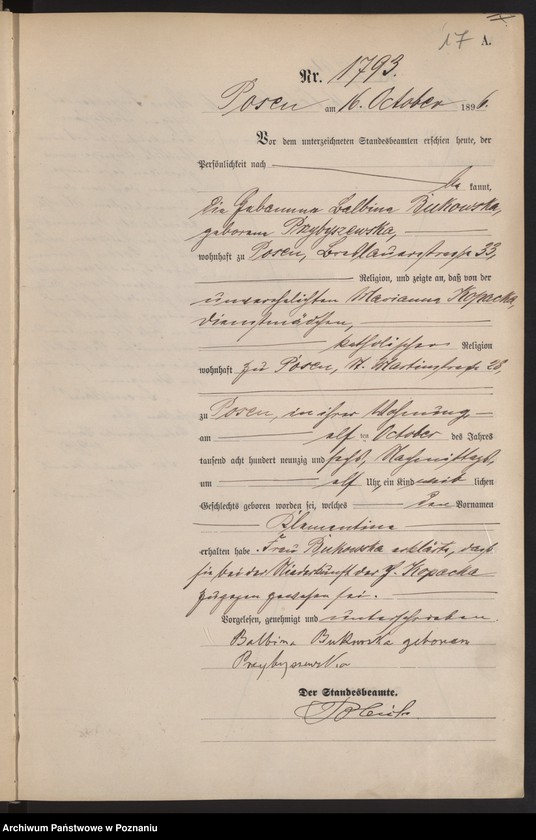 17 A.
Nr. 1793.
Posen am 16. October 1896.
Vor dem unterzeichneten Standesbeamten erschien heute, der
Persönlichkeit nach
be kannt,
die Hebamme Balbina Bukowska,
geborene Przybyszewska,
wohnhaft zu Posen, Breslauerstrasse 33,
Religion, und zeigte an, daß von der
unverehelichten Marianna Kopacka,
Dienstmädchen,
katholischer Religion
wohnhaft zu Posen, St. Martinstrasse 28,
zu Posen, in ihrer Wohnung,
am elf ten October des Jahres
tausend acht hundert neunzig und sechs, Nachmittags,
um elf Uhr, ein Kind weib lichen
Geschlechts geboren worden sei, welches den Vornamen
Klementina
erhalten habe. Frau Bukowska erklärte, daß
sie bei der Niederkunft der p. Kopacka
zugegen gewesen sei.
Vorgelesen, genehmigt und unterschrieben.
Balbina Bukowska geboren
Przybyszewska
Der Standesbeamte.
Archiwum Państwowe w Poznaniu